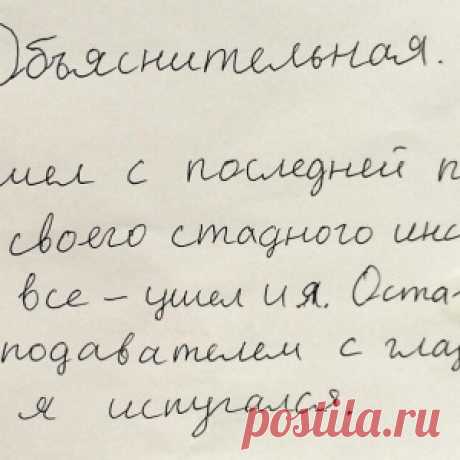 Объяснительная.
мел с последней п
своего стадного инс
все – ушел и я. Оста-
подавателем с глаз
я испугался.
postila.ru